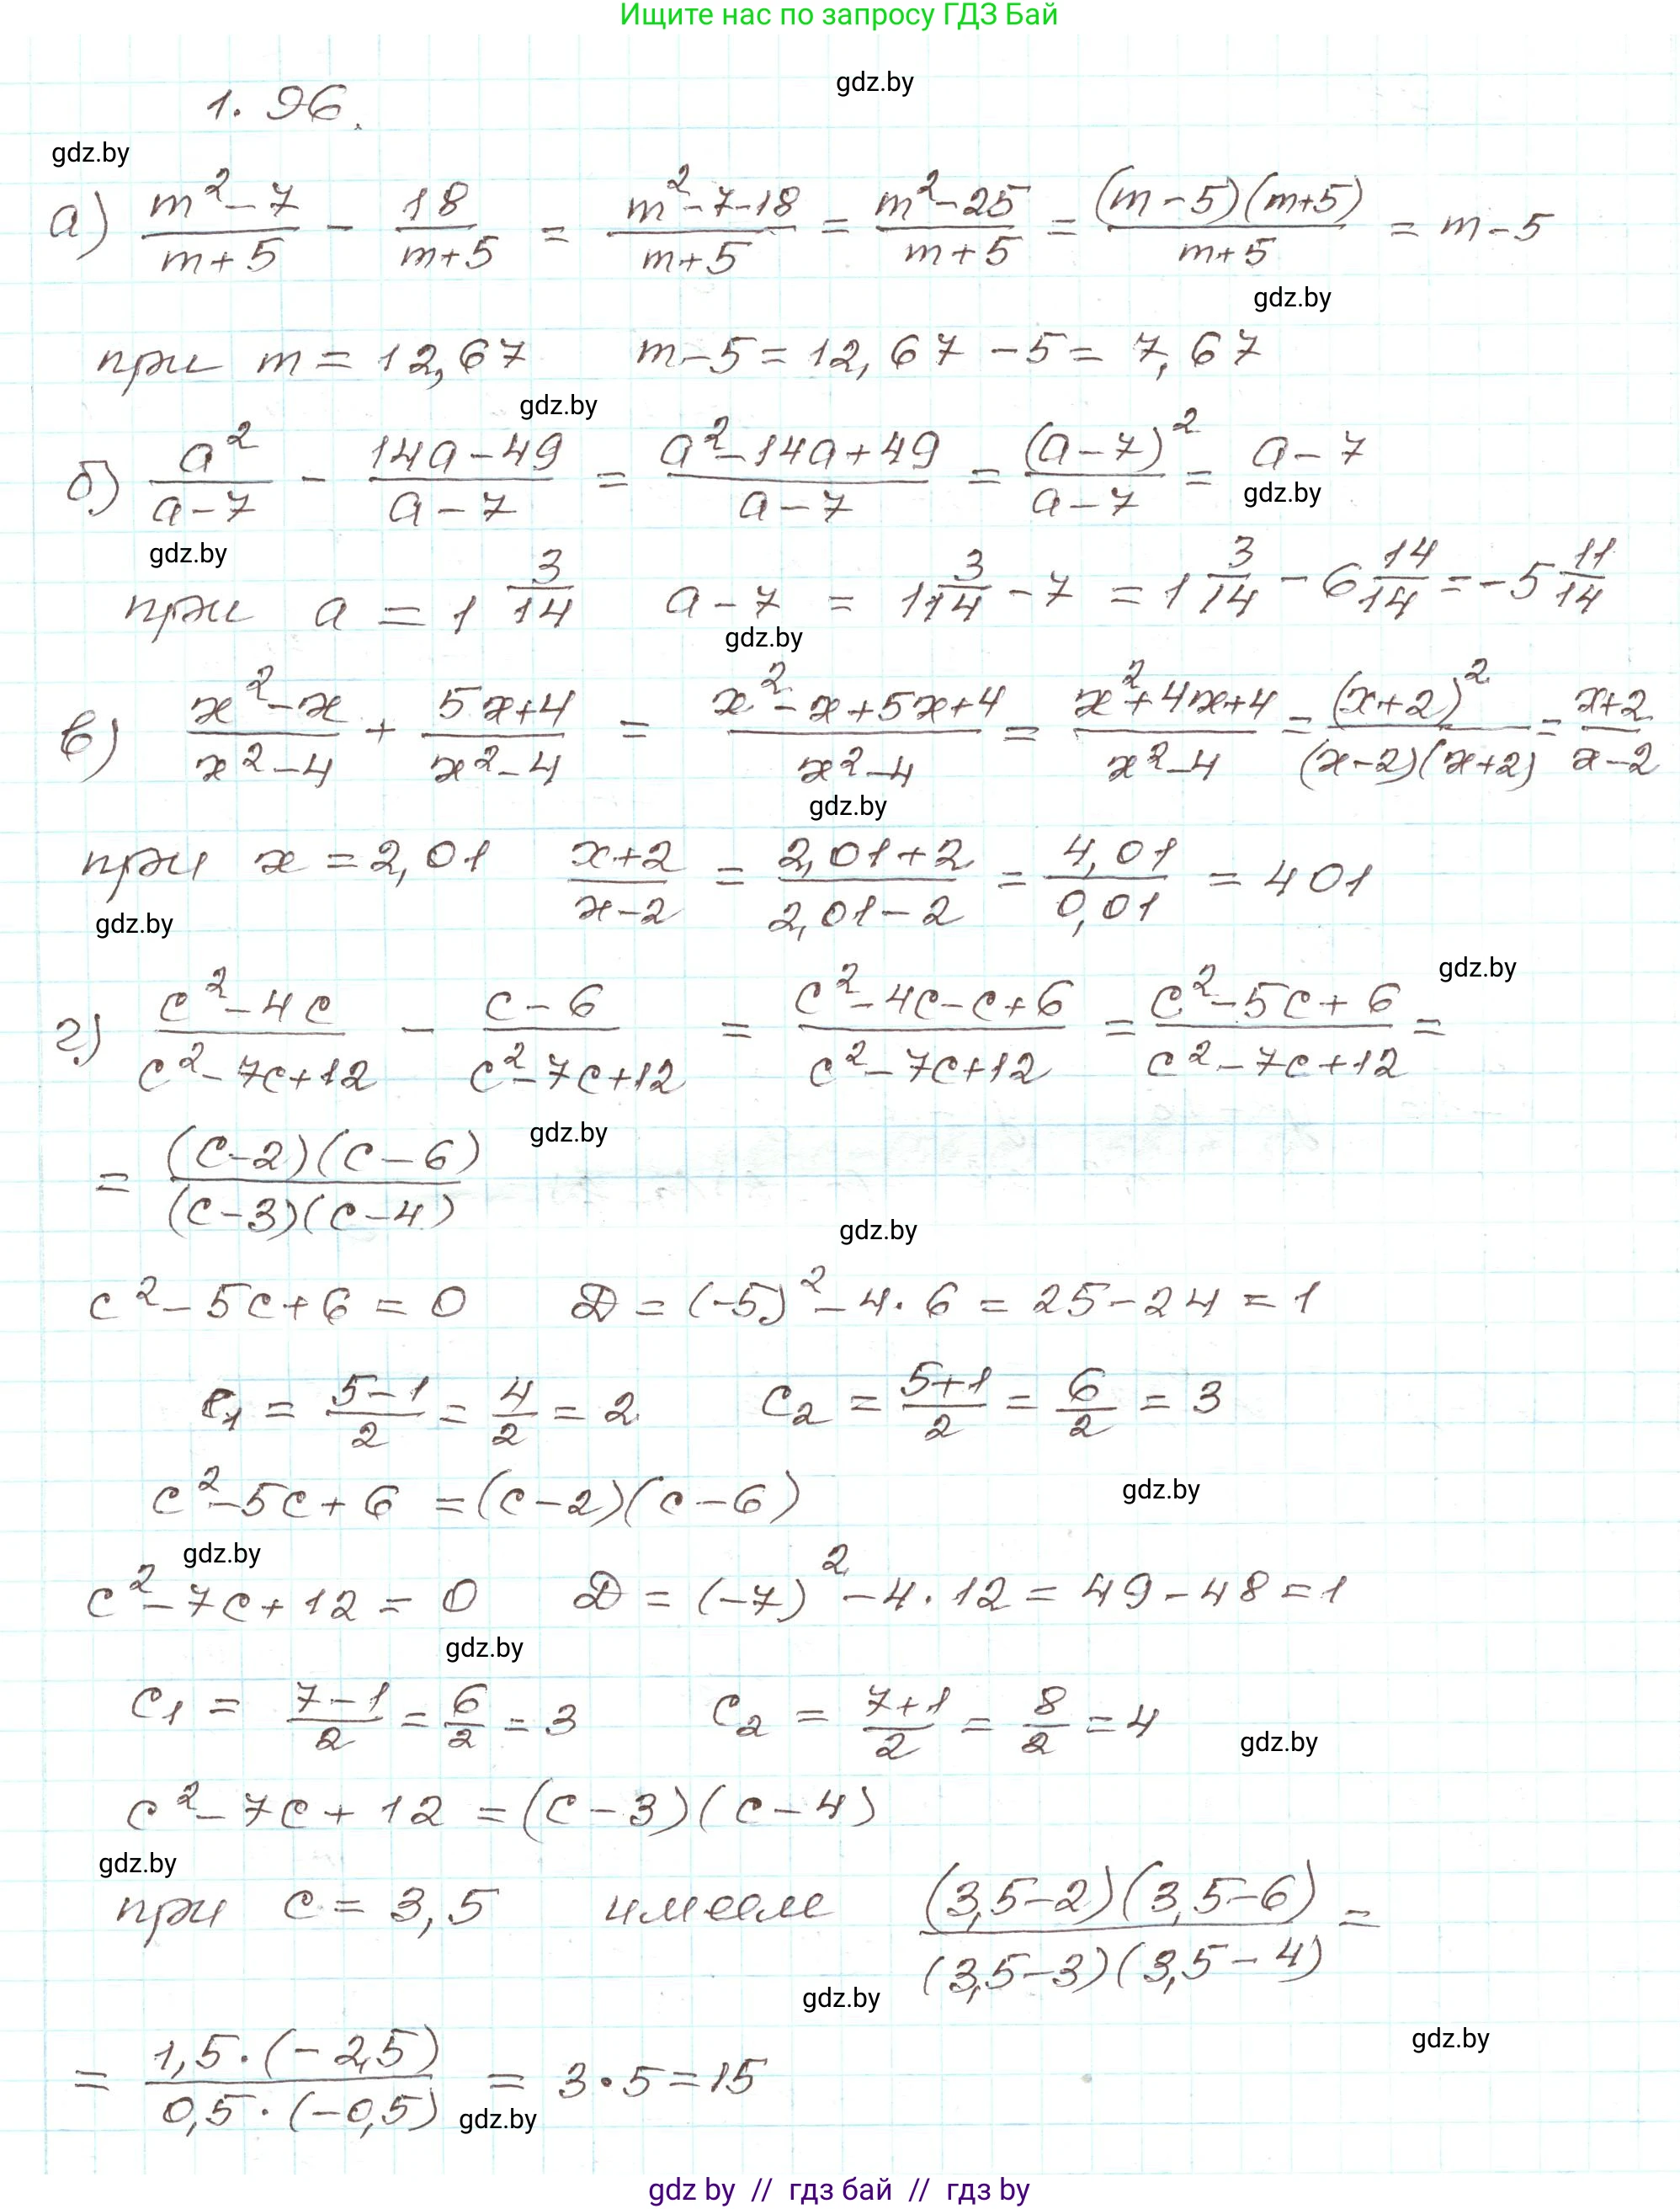 Ищите нас по запросу ГДЗ Бай
gdz.by
1.96.
gdz.by
а) (m²-7)/(m+5) - 18/(m+5) = (m²-7-18)/(m+5) = (m²-25)/(m+5) = ((m-5)(m+5))/(m+5) = m-5
gdz.by
при m = 12,67 m-5 = 12,67 -5 = 7,67
gdz.by
б) a²/(a-7) - (14a-49)/(a-7) = (a²-14a+49)/(a-7) = (a-7)²/(a-7) = a-7
gdz.by
gdz.by
при a = 1 3/14 a-7 = 1 3/14 - 7 = 1 3/14 - 6 14/14 = -5 11/14
gdz.by
в) (x²-x)/(x²-4) + (5x+4)/(x²-4) = (x²-x+5x+4)/(x²-4) = (x²+4x+4)/(x²-4) = (x+2)²/((x-2)(x+2)) = (x+2)/(x-2)
gdz.by
при x = 2,01 (x+2)/(x-2) = (2,01+2)/(2,01-2) = 4,01/0,01 = 401
gdz.by
gdz.by
г) (c²-4c)/(c²-7c+12) - (c-6)/(c²-7c+12) = (c²-4c-c+6)/(c²-7c+12) = (c²-5c+6)/(c²-7c+12) =
gdz.by
= ((c-2)(c-6))/((c-3)(c-4))
gdz.by
c²-5c+6 = 0 D = (-5)²-4·6 = 25-24 = 1
c₁ = (5-1)/2 = 4/2 = 2 c₂ = (5+1)/2 = 6/2 = 3
c²-5c+6 = (c-2)(c-6)
gdz.by
gdz.by
c²-7c+12 = 0 D = (-7)²-4·12 = 49-48 = 1
gdz.by
c₁ = (7-1)/2 = 6/2 = 3 c₂ = (7+1)/2 = 8/2 = 4
gdz.by
c²-7c+12 = (c-3)(c-4)
gdz.by
при c = 3,5 имеем ((3,5-2)(3,5-6))/((3,5-3)(3,5-4)) =
gdz.by
gdz.by
= (1,5·(-2,5))/(0,5·(-0,5)) = 3·5 = 15
gdz.by
gdz by // гдз бай // гдз by